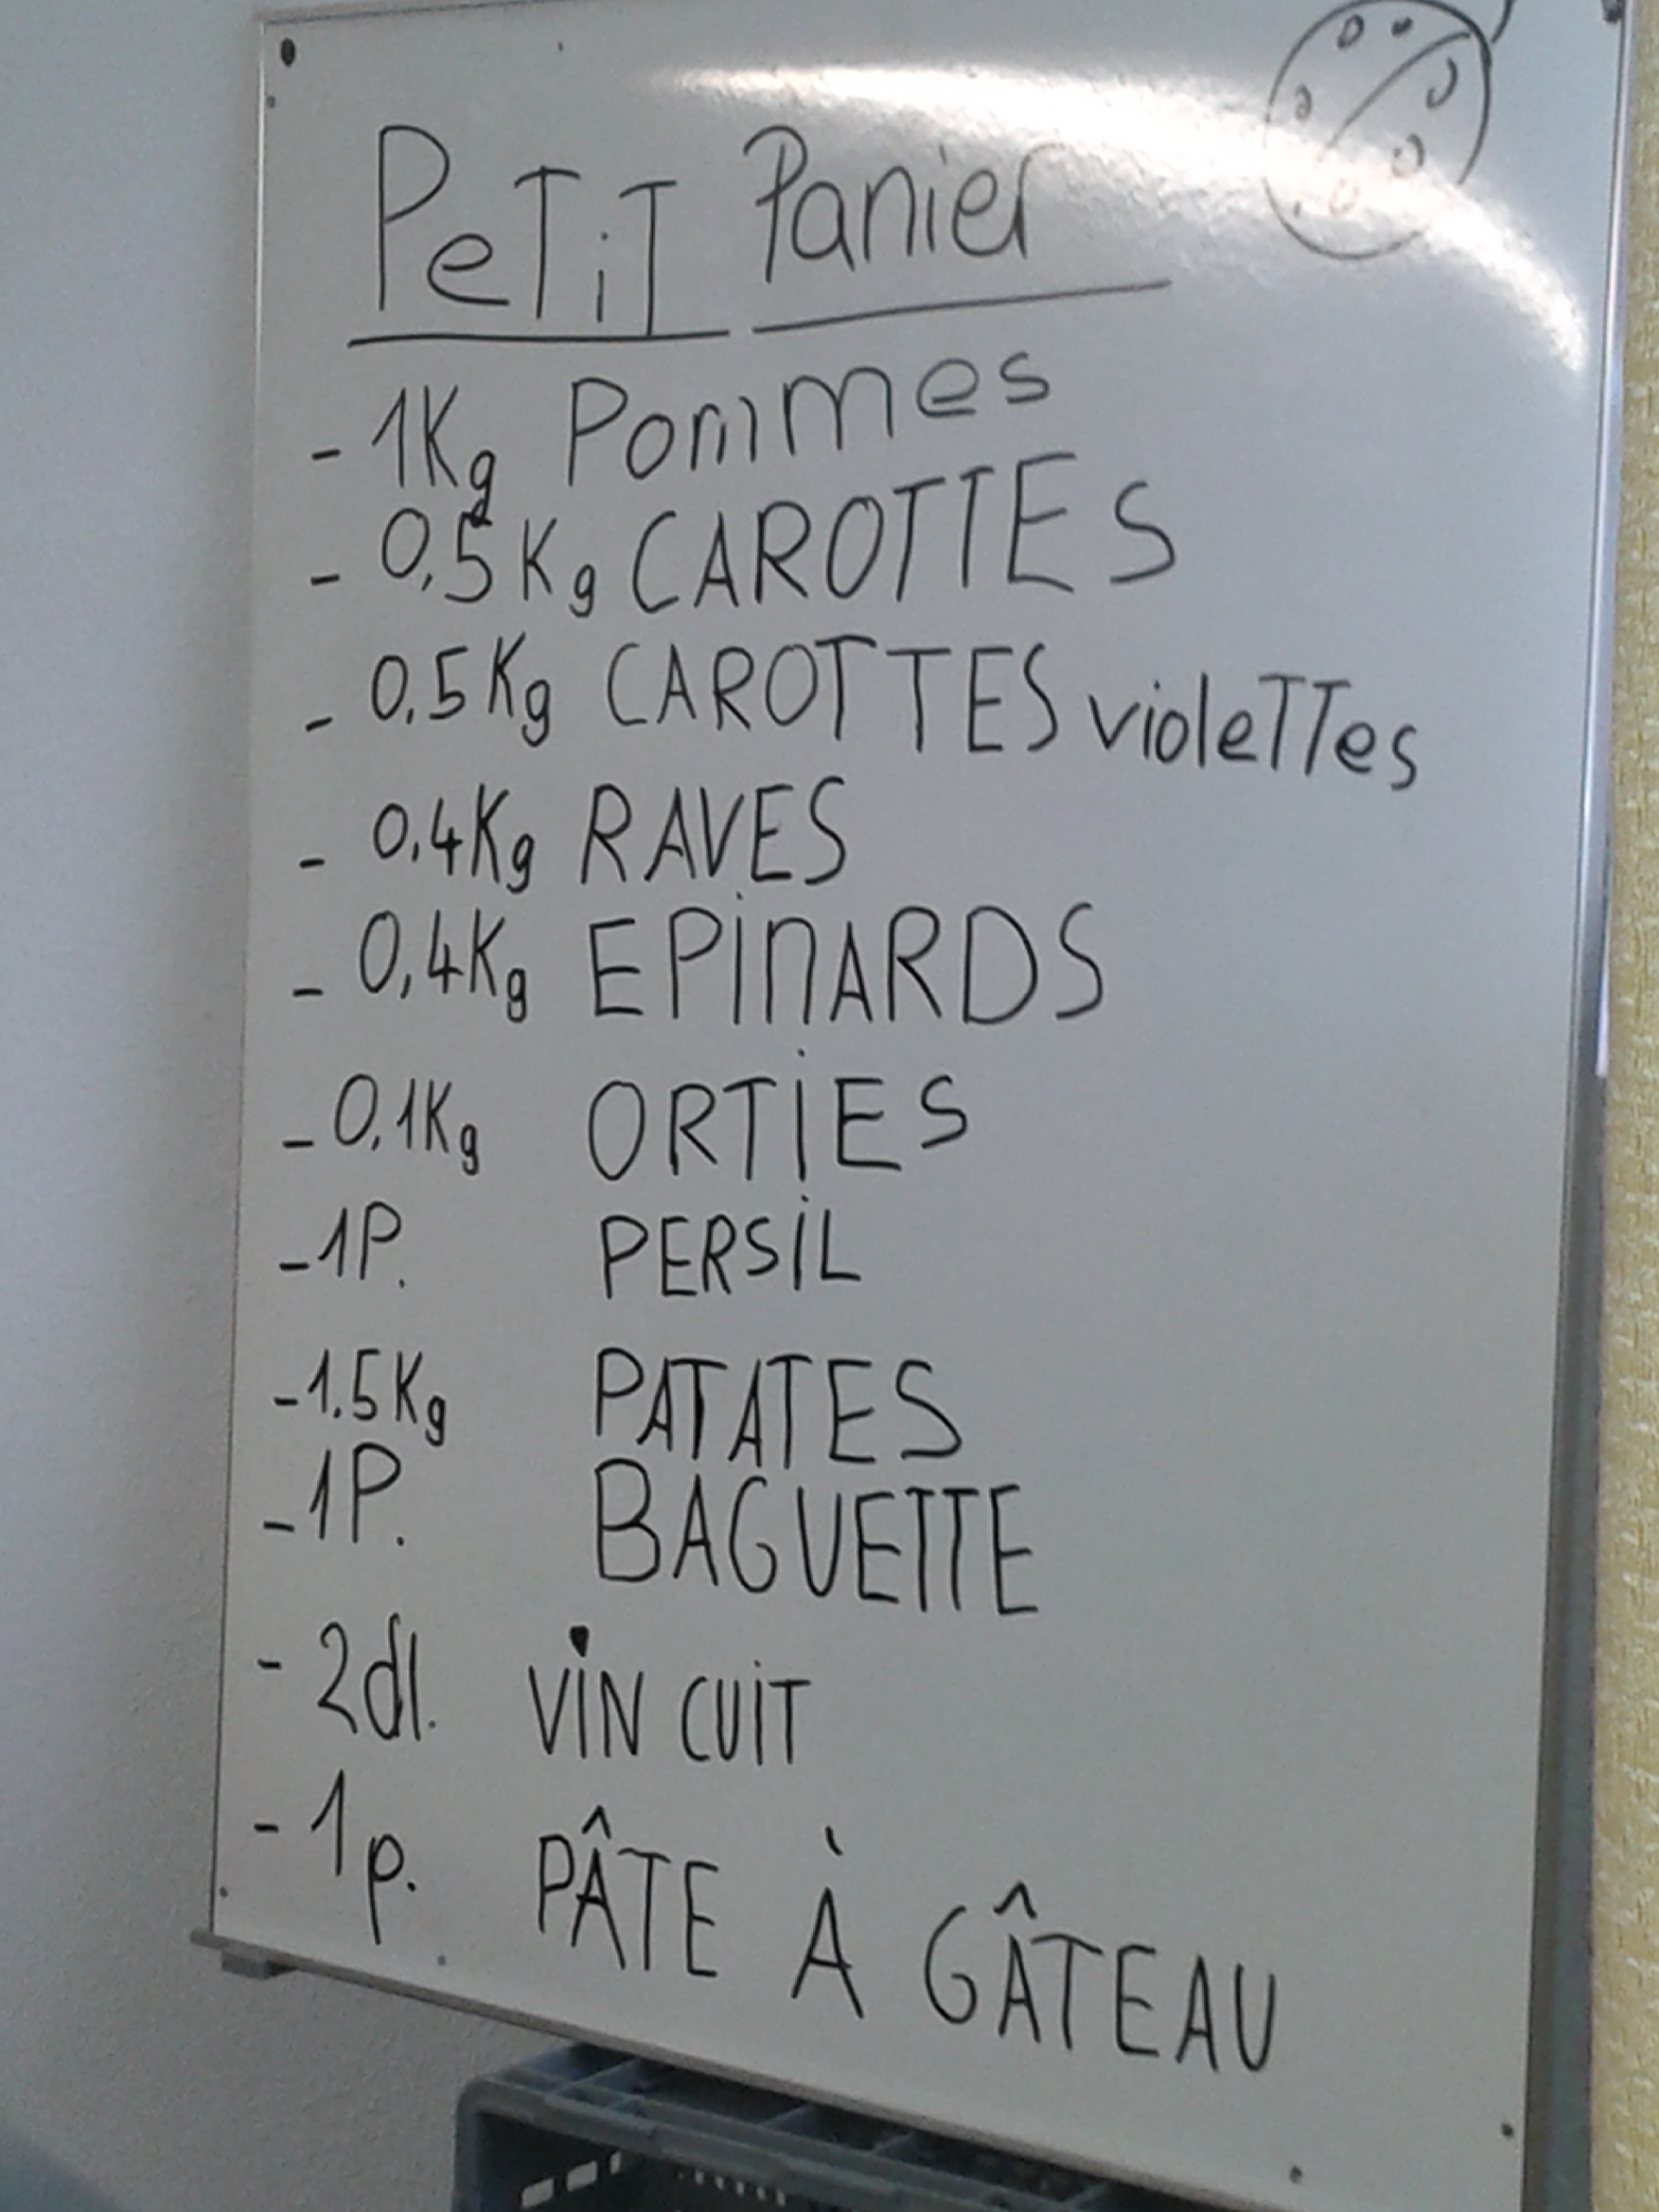 PeTiT Panier
- 1Kg Pommes
- 0,5Kg CAROTTES
- 0.5Kg CAROTTES violeTTes
- 0.4Kg RAVES
- 0,4Kg EPiNARDS
- 0.1Kg ORTiES
- 1P. PERSiL
- 1.5Kg PATATES
- 1P. BAGUETTE
- 2dl. ViN CUiT
- 1p. PÂTE À GÂTEAU